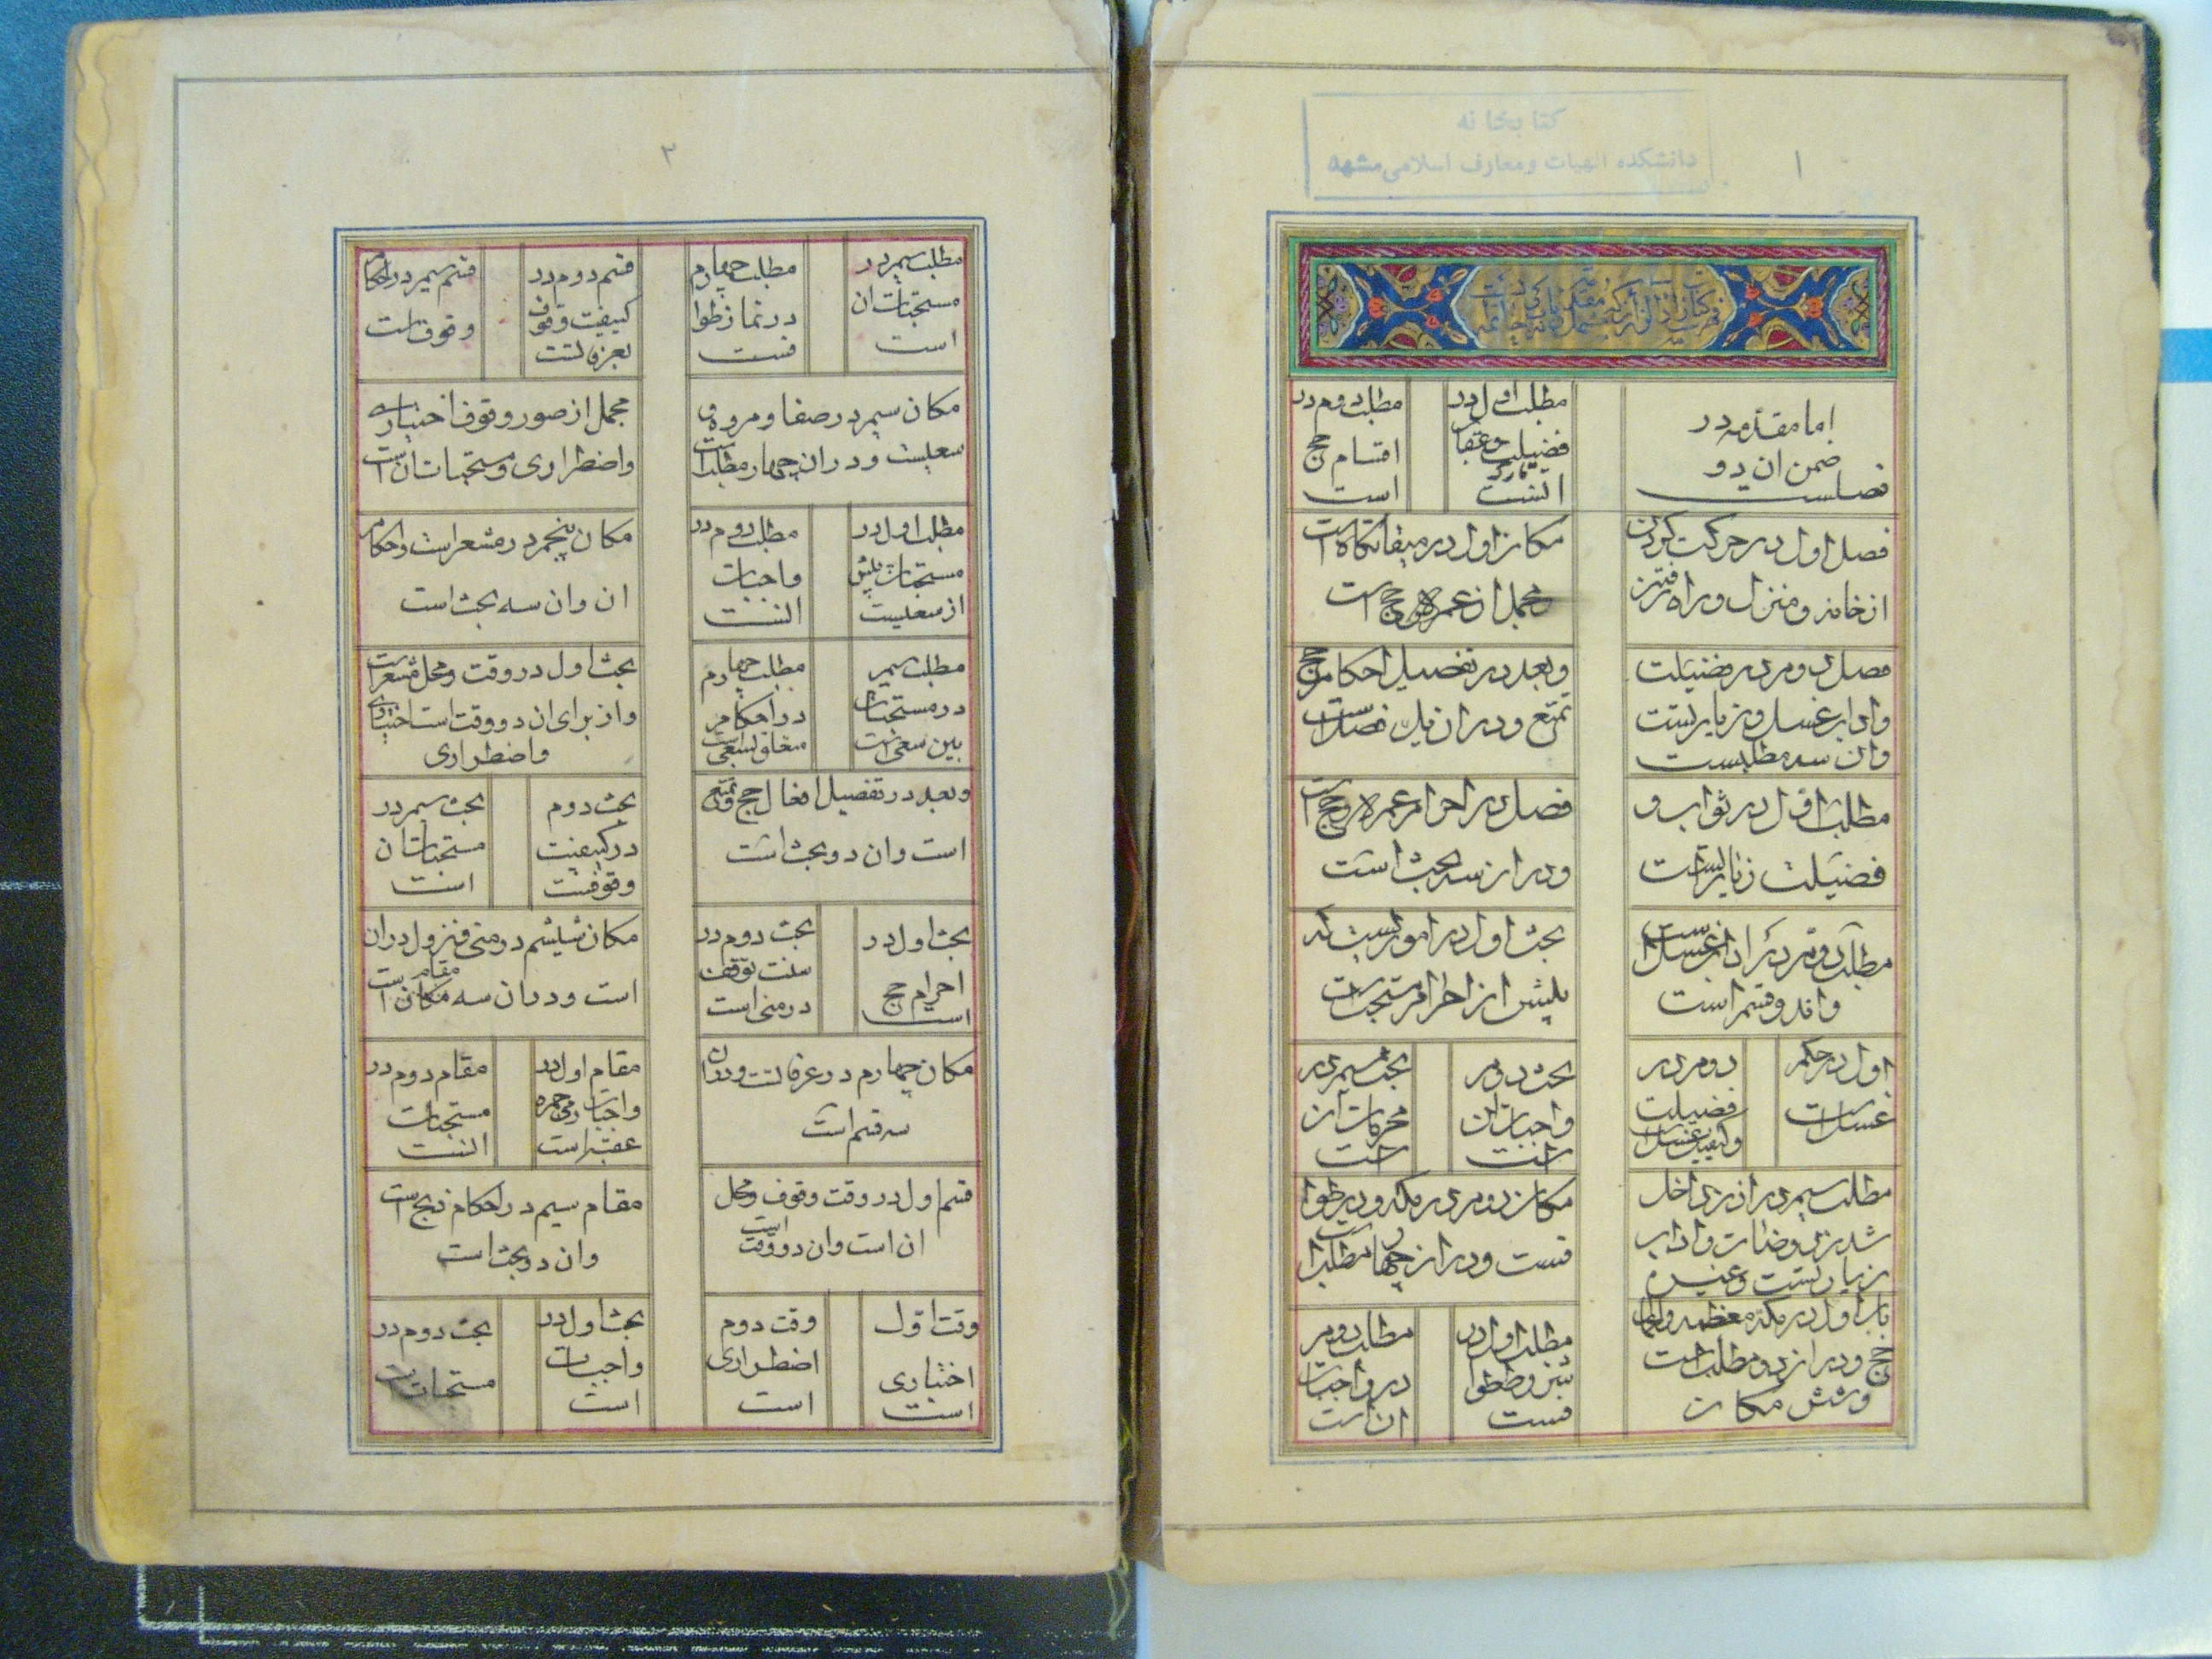 کتابخانه
دانشکده الهیات و معارف اسلامی مشهد
۱
اما مقدمه در
ضمن ان دو
فصلست
مطلب اول در
فضیلت و عقاب
است
مطلب دوم در
اقسام حج
است
فصل اول در حرکت کردن
از خانه و منزل و راه رفتن
مکان اول در میقاتگاه است
مجمل از عمره و حج است
فصل دوم در فضیلت
واداب غسل و زیارتست
وان سه مطلبست
وبعد در تفصیل احکام حج
تمتع و در ان یک فصل است
مطلب اول در ثواب و
فضیلت زیارتست
فصل در احرام عمره و حج است
و در ان سه بحث است
مطلب دوم در اداب غسل است
وان دو قسم است
بحث اول در اموریست که
پیش از احرام مستحب است
اول در حکم
غسل است
دوم در
فضیلت
وکیفیت غسل است
بحث دوم
واجبات ان
است
بحث سیم در
محرمات ان
است
مطلب سیم در اذن داخل
شدن روضات و اداب
زیارتست و غیره
مکان دوم در مکه و در طوا
فست و در ان چهار مطلب است
باب اول در مکه معظمه و اعمال
حج و در ان دو مطلب است
و شش مکان
مطلب اول در
طوا
فست
مطلب دوم
در واجبات
ان است
۲
مطلب سیم در
مستحبات ان
است
مطلب چهارم
در نماز طوا
فست
قسم دوم در
کیفیت وقوف
بعرفاتست
قسم سیم در احکام
وقوفست
مکان سیم در صفا و مروه و
سعیست و در ان چهار مطلب است
مجمل از صور وقوف اختیاری
واضطراری و مستحبات ان است
مطلب اول در
مستحبات پیش
از سعیست
مطلب دوم در
واجبات
انست
مکان پنجم در مشعر است و احکام
ان وان سه بحث است
مطلب سیم
در مستحبات
بین سعی است
مطلب چهارم
در احکام
متعلق بسعی است
بحث اول در وقت و محل مشعر است
و از برای ان دو وقت است اختیاری
واضطراری
وبعد در تفصیل افعال حج تمتع
است وان دو بحث است
بحث دوم
در کیفیت
وقوفست
بحث سیم در
مستحبات ان
است
بحث اول در
احرام حج
است
بحث دوم در
سنت توقف
در منی است
مکان ششم در منی و نزول در ان
است و در ان سه مقام است
مکان چهارم در عرفاتست و در ان
سه قسم است
مقام اول در
واجبات رمی جمره
عقبه است
مقام دوم در
مستحبات
انست
قسم اول در وقت وقوف و محل
ان است وان دو وقت است
مقام سیم در احکام ذبح است
وان دو بحث است
وقت اول
اختیاری
است
وقت دوم
اضطراری
است
بحث اول در
واجبات
است
بحث دوم در
مستحبات است